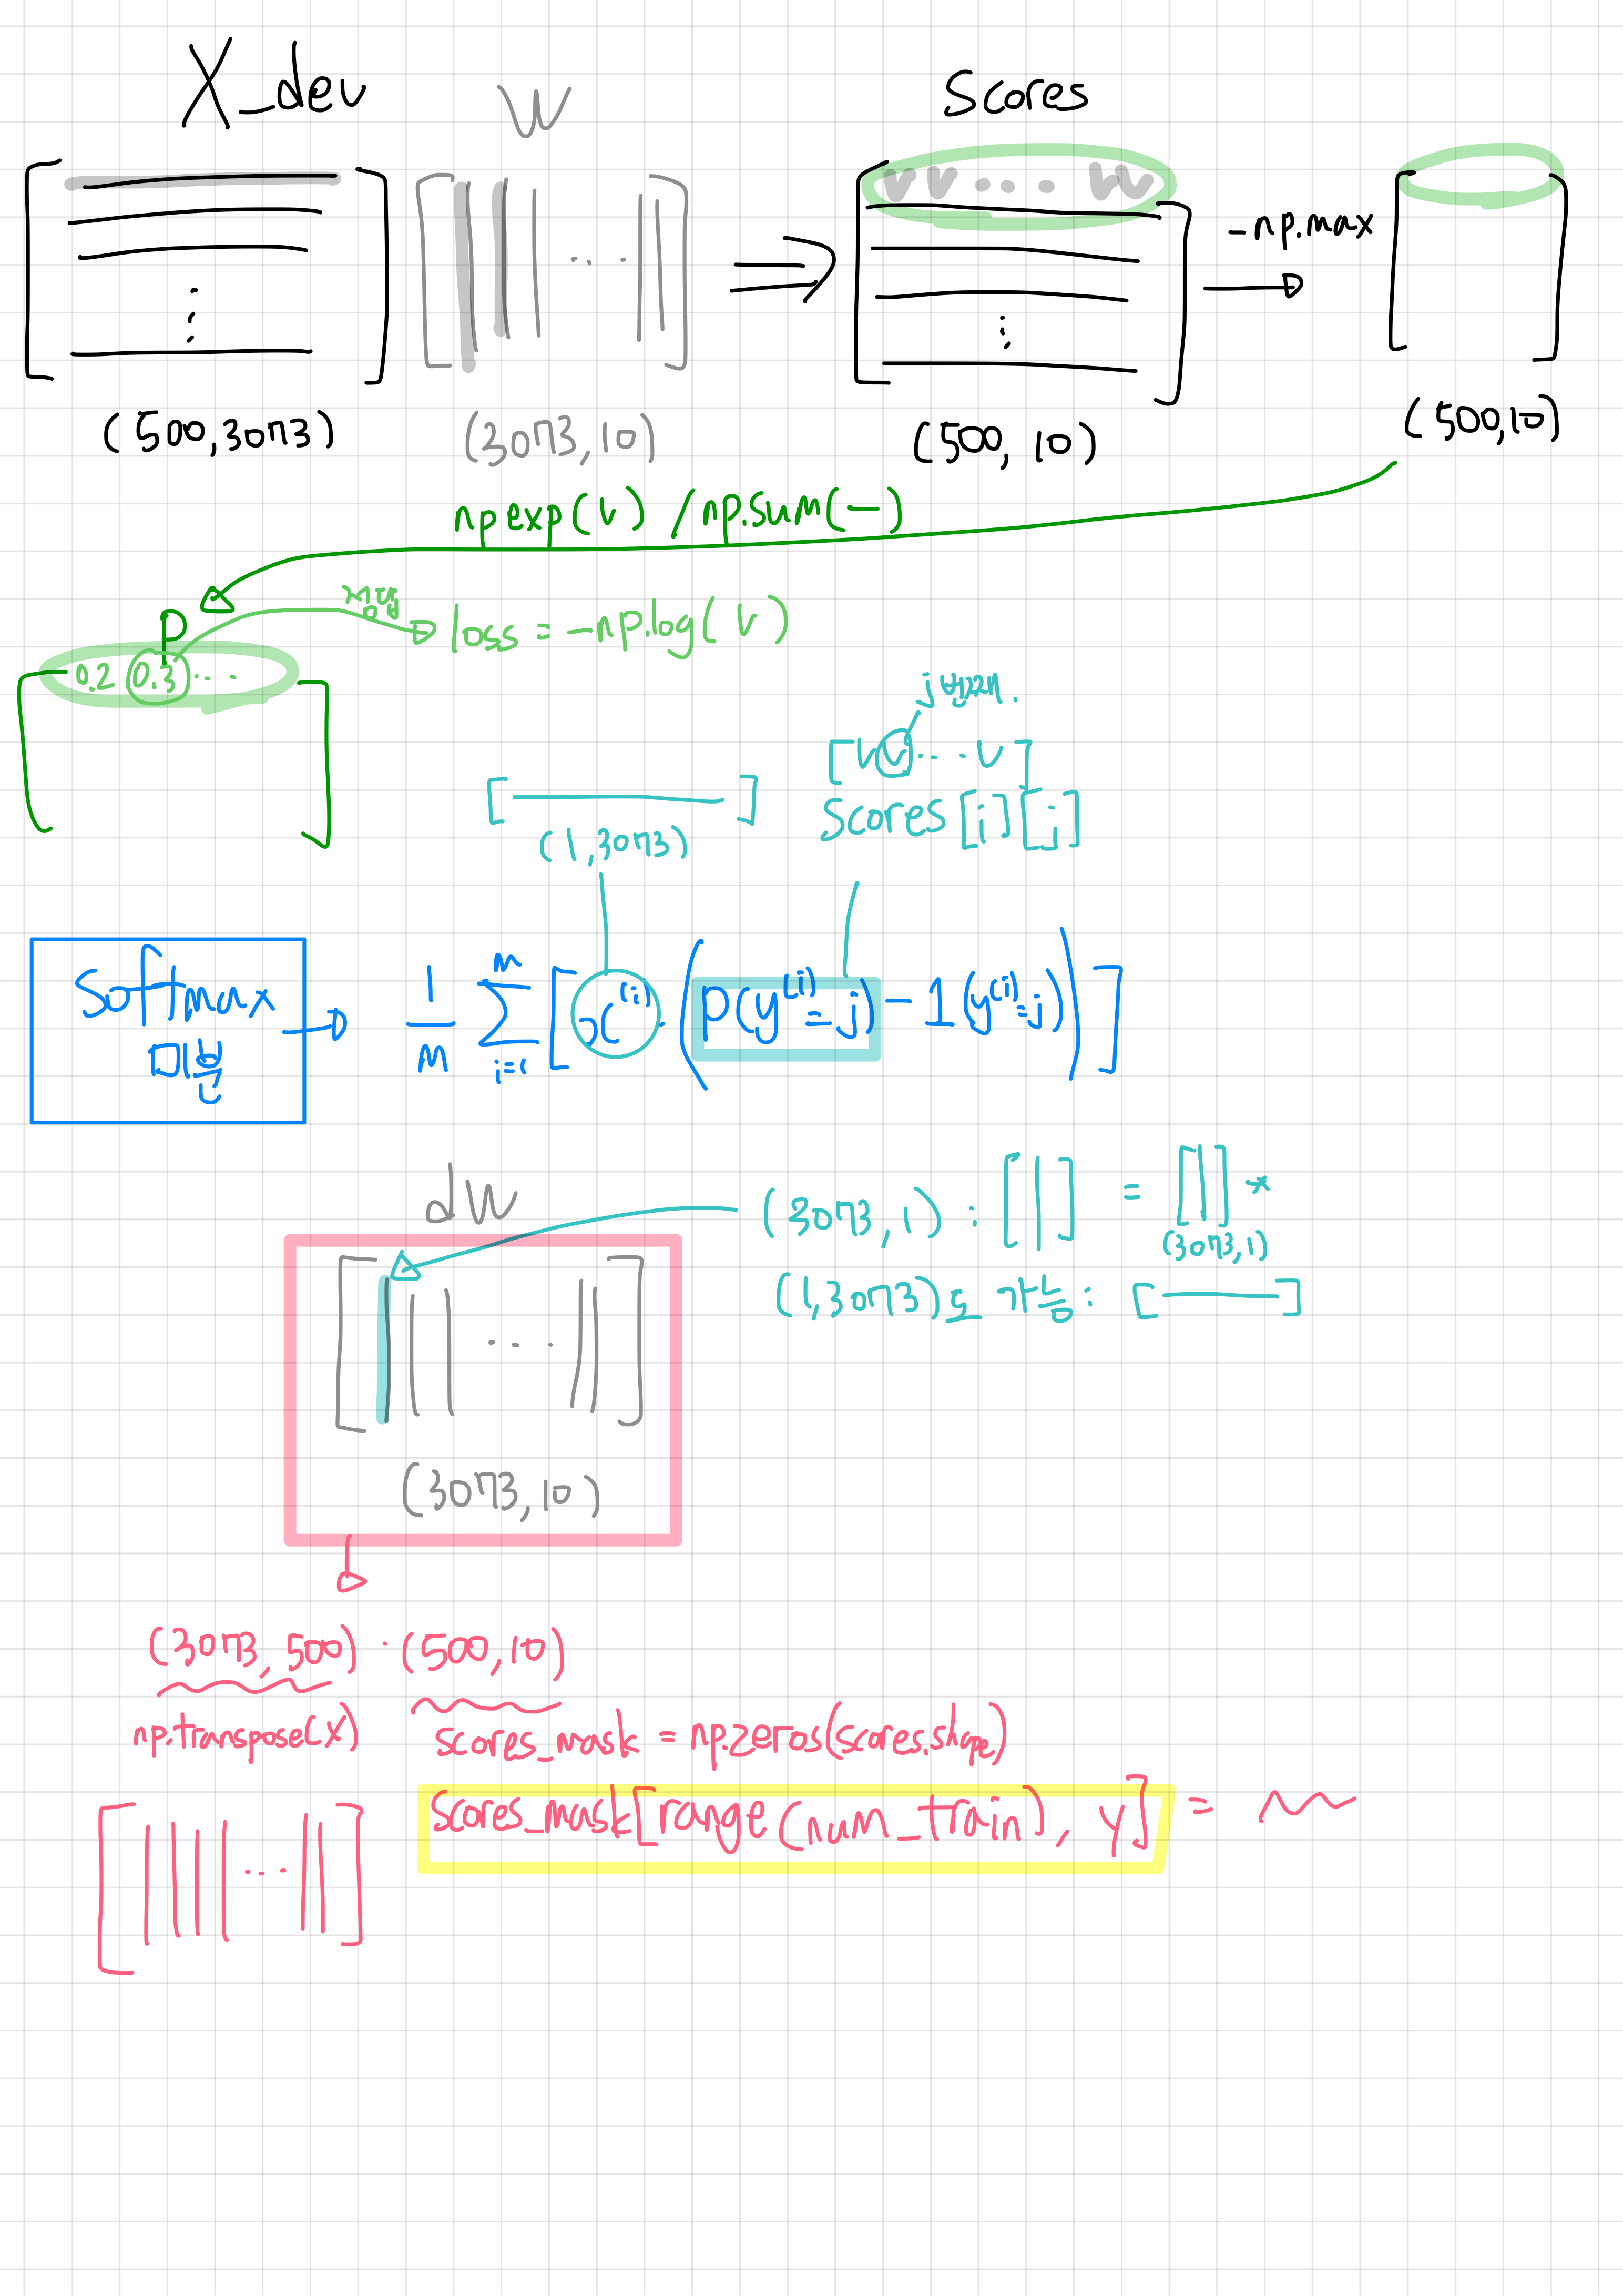 X_dev
W
Scores
v v ... w
- np.max
(500,3073)
(3073,10)
(500, 10)
(500,10)
np exp(v) / np.sum(-)
P
loss = -np.log( v )
0.2 0.3 ...
j번째.
[v v ... v]
Scores [i][j]
(1,3073)
Softmax
미분
1/m Σ i=1 m [ x(i) · ( P(y(i)=j) - 1(y(i)=j) ) ]
dW
(3073,1) : [ | ] = [ | ] *
(3073,1)
(1,3073)도 가능: [ — ]
...
(3073,10)
(3073, 500) · (500,10)
np.transpose(X)
scores_mask = np.zeros(scores.shape)
scores_mask[range(num_train), y] = ~
...